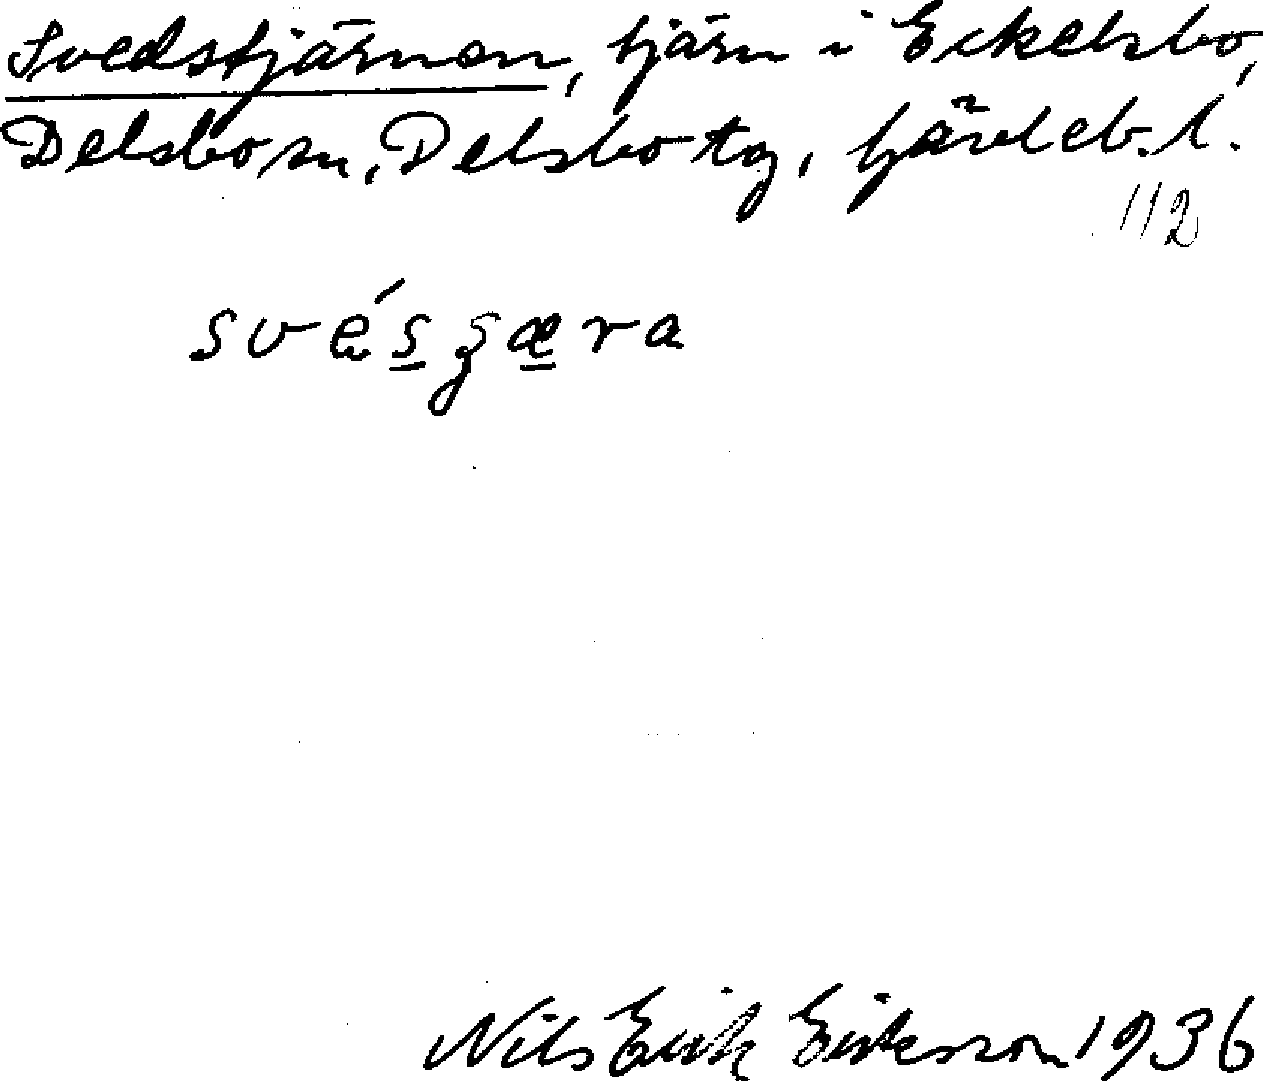 Svedstjärnen, tjärn i Eckelsbo,
Delsbo sn, Delsbo tg, Gävleb. l.
112
své̱s̱ʒæ̱ra
Nils Erik Eriksson 1936